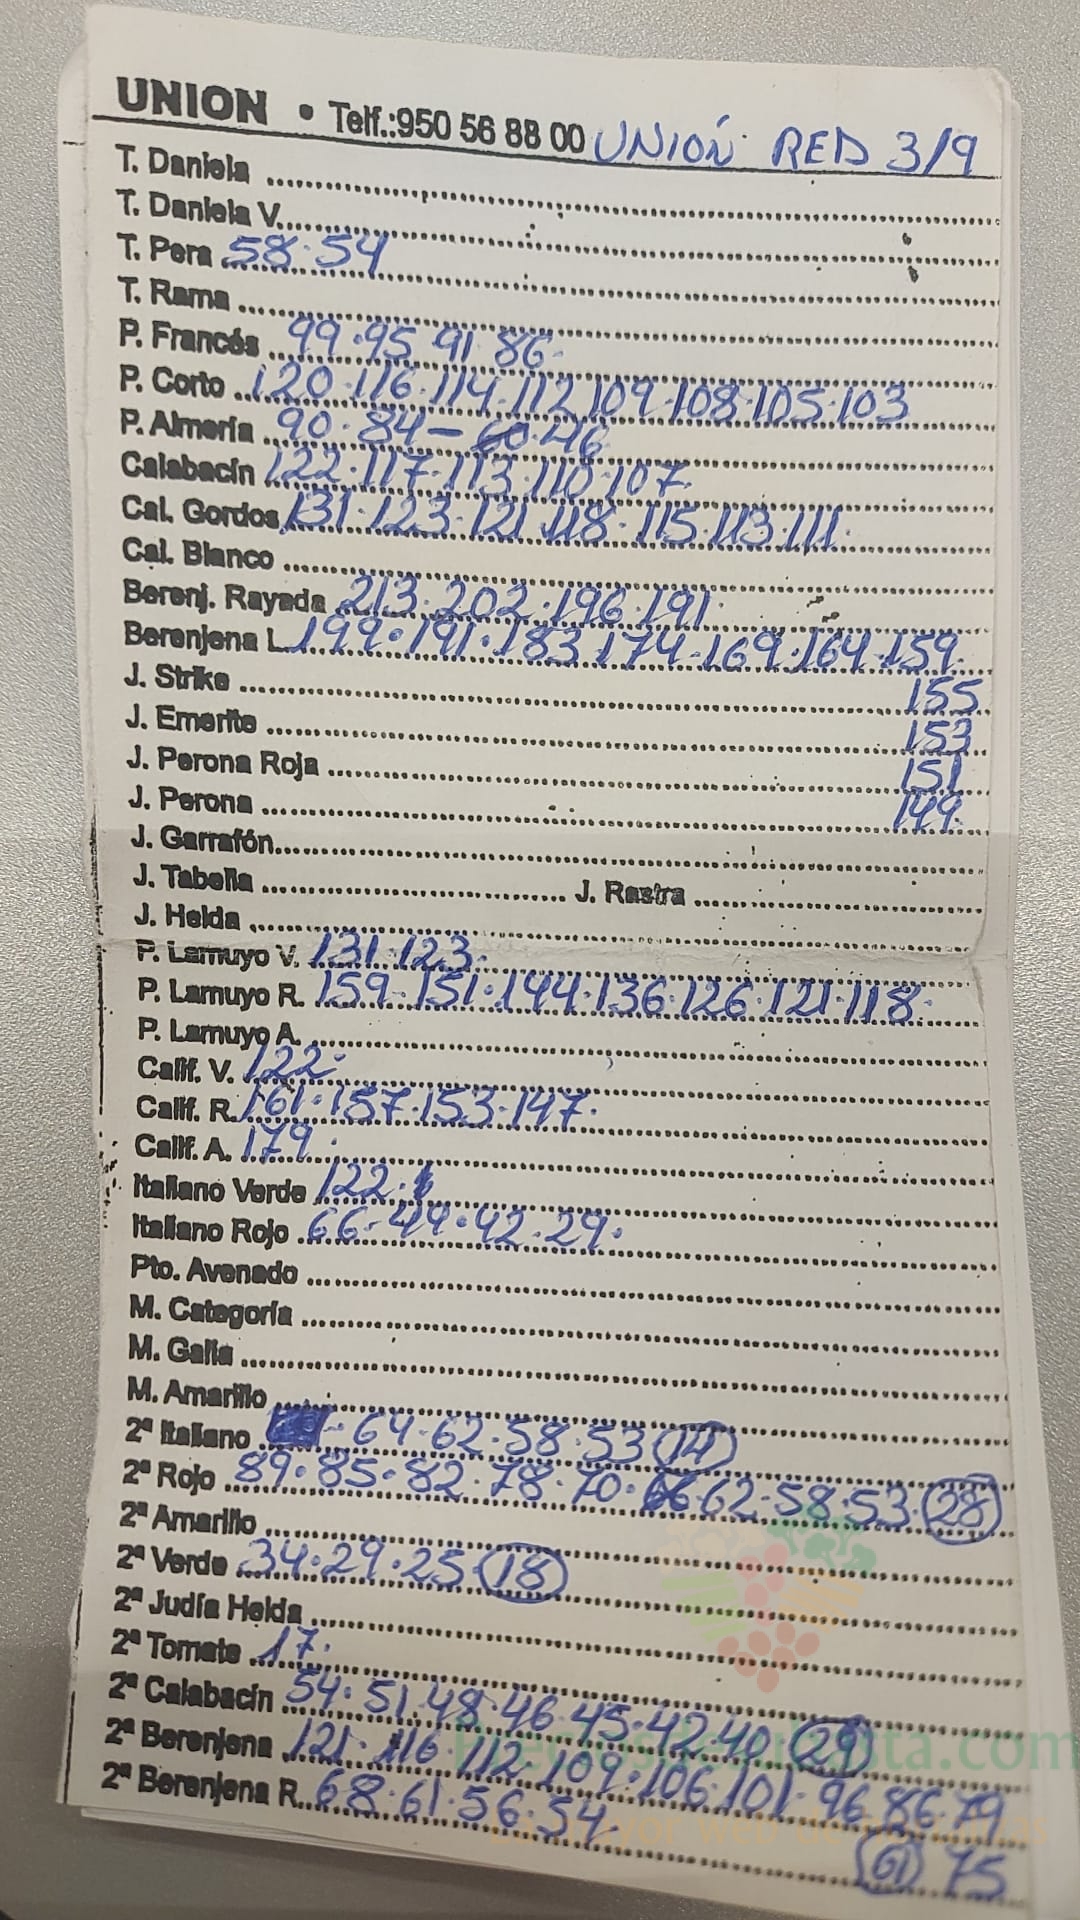 UNION • Telf.:950 56 88 00 UNIÓN RED 3/9
T. Daniela
T. Daniela V.
T. Pera 58·54
T. Rama
P. Francés 99·95 91·86·
P. Corto 120·116·114·112·109·108·105·103
P. Almería 90·84–60·46
Calabacín 122·117·113·110·107
Cal. Gordos 131·123·121·118·115·113·111·
Cal. Blanco
Berenj. Rayada 213·202·196·191·
Berenjena L. 199·191·183·174·169·164·159·
J. Strike 155
J. Emerite 153
J. Perona Roja 151
J. Perona 149·
J. Garrafón
J. Tabella J. Rastra
J. Helda
P. Lamuyo V. 131·123·
P. Lamuyo R. 159–151·144·136·126·121·118·
P. Lamuyo A.
Calif. V. 122·
Calif. R. 161·157·153·147·
Calif. A. 179·
Italiano Verde 122·
Italiano Rojo 66–49·42·29·
Pto. Avenado
M. Categoría
M. Galia
M. Amarillo
2ª Italiano – 64·62·58·53 (14)
2ª Rojo 89·85·82·78·70·66 62·58·53·(28)
2ª Amarillo
2ª Verde 34·29·25·(18)
2ª Judía Helda
2ª Tomate 17·
2ª Calabacín 54·51·48·46·45·42·40 (29)
2ª Berenjena 121·116 112·109·106·101·96 86·79
2ª Berenjena R. 68·61·56·54·
(61) 75